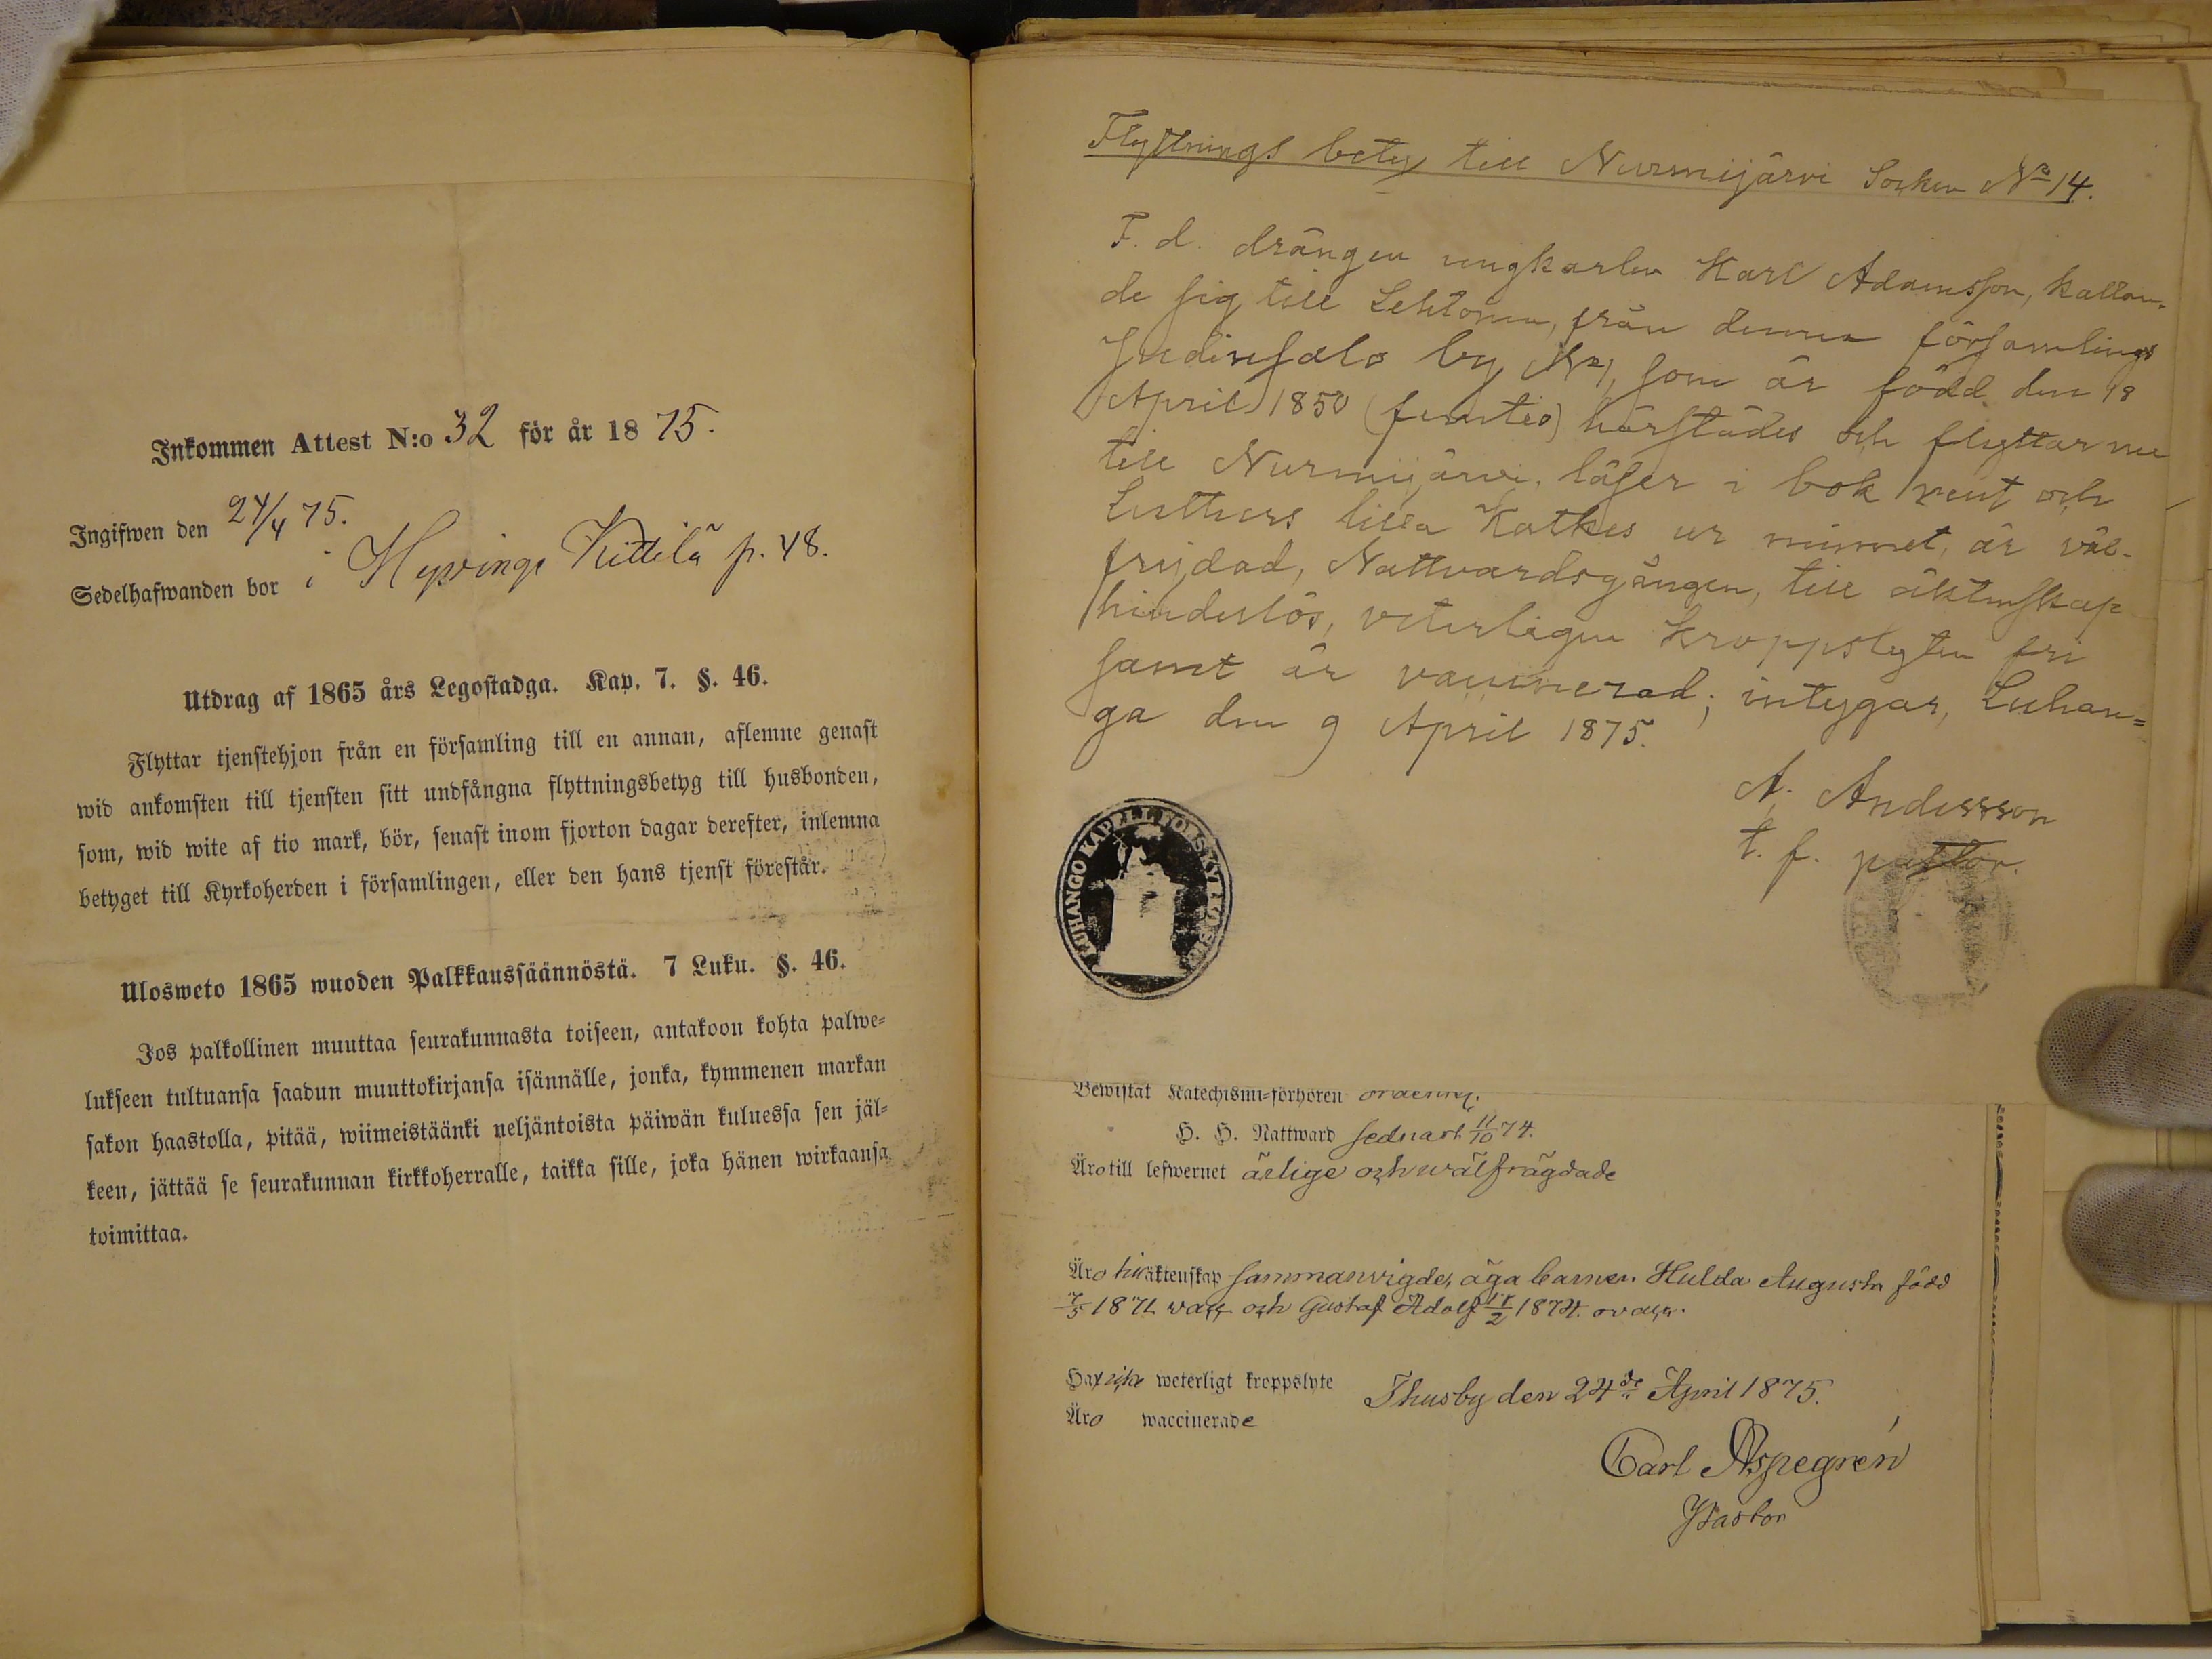 Inkommen Attest N:o 32 för år 1875.
Ingifwen den 24/4 75.
Sedelhafwanden bor i Hyvinge Kittilä p. 48.
Utdrag af 1865 års Legostadga. Kap. 7. §. 46.
Flyttar tjenstehjon från en församling till en annan, aflemne genast
wid ankomsten till tjensten sitt undfångna flyttningsbetyg till husbonden,
som, wid wite af tio mark, bör, senast inom fjorton dagar derefter, inlemna
betyget till Kyrkoherden i församlingen, eller den hans tjenst förestår.
Ulosweto 1865 wuoden Palkkaussäännöstä. 7 Luku. §. 46.
Jos palkollinen muuttaa seurakunnasta toiseen, antakoon kohta palwe=
lukseen tultuansa saadun muuttokirjansa isännälle, jonka, kymmenen markan
sakon haastolla, pitää, wiimeistäänki neljäntoista päiwän kuluessa sen jäl=
keen, jättää se seurakunnan kirkkoherralle, taikka sille, joka hänen wirkaansa
toimittaa.
Flyttnings betyg till Nurmijärvi Socken No 14.
F. d. drängen ungkarlen Karl Adamsson, kallan-
de sig till Lehtonen, från denna församlings
by No 1, som är född den 18
April 1850 (femtio) härstädes och flyttar nu
till Nurmijärvi, läser i bok rent och
Luthers lilla Katkes ur minnet, är väl-
frejdad, Nattvardsgången, till äktenskap
hinderlös, veterligen kroppslyten fri
samt är vaccinerad; intygar, Luhan=
ga den 9 April 1875.
A. Andersson
t. f. pastor.
LUHANGO KAPELL FÖRS. KYRKO
Bewistat Katechismi=förhören ordentl.
H. H. Nattward sednast 11/10 74.
Äro till lefwernet ärlige och wälfrägdade
Äro till äktenskap sammanvigde, äga barnen Hulda Augusta född
7/5 1871 vacc. och Gustaf Adolf 2 1874. ovacc.
Hafwa icke weterligt kroppslyte
Äro waccinerade
Thusby den 24de April 1875.
Carl Aspegrén
Pastor